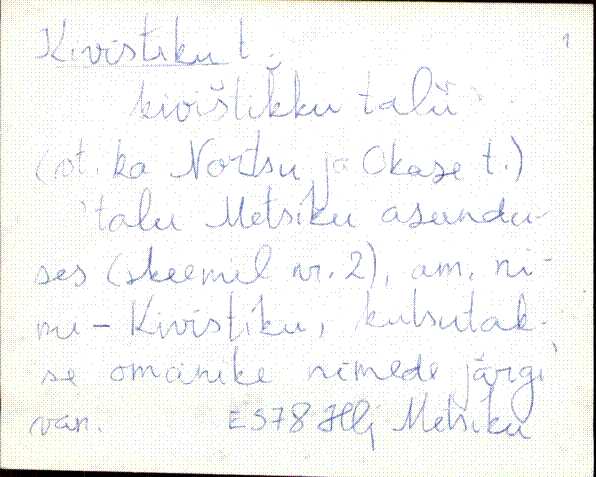 Kivistiku t. 1
kivištikku talŭ
(vt. ka Nortsu ja Okase t.)
talu Metsiku asundu-
ses (skeemil nr. 2), am. ni-
mi - Kivistiku, kutsutak-
se omanike nimede järgi
van. ES78 Hlj Metsiku